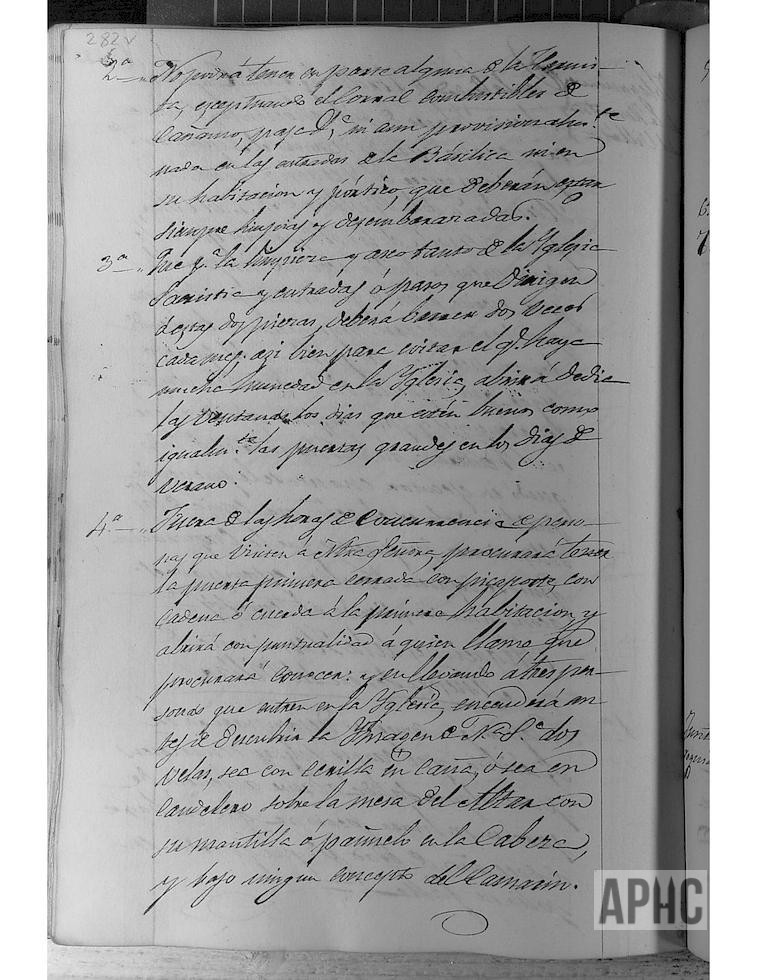 282v
2ª No podrá tener en parte alguna de la Hermi-
ta, exceptuando el Corral combustibles de
Cañamo, paja &ª ni aun provisionalm.te
nada en las entradas de la Básilica ni en
su habitacion y pórtico, que deberán estar
siempre limpias y desembarazadas.
3ª Que p.ª la limpieza y aseo tanto de la Yglesia
Sacristia y entradas ó pasos que dirigen
á estas dos piezas, deberá barrer dos veces
cada mes. asi bien para evitar el q.e haya
mucha humedad en la Yglesia, abrirá de dia
las ventanas los dias que estén buenos como
igualm.te las puertas grandes en los dias de
verano.
4ª Fuera de las horas de concurrencia de perso-
nas que visiten á Ntra Señora, procurará tener
la puerta primera cerrada con picaporte, con
cadena ó cuerda á la primera habitacion, y
abrirá con puntualidad á quien llame que
procurará conocer: y en llegando á tres per-
sonas que entren en la Yglesia, encenderá an
tes de descubrir la Ymagen de Nª Sª dos
velas, sea con cerilla en caña, ó sea en
candelero sobre la mesa del Altar con
su mantilla ó pañuelo en la Cabeza,
y bajo ningun concepto del Camarin.
APHC